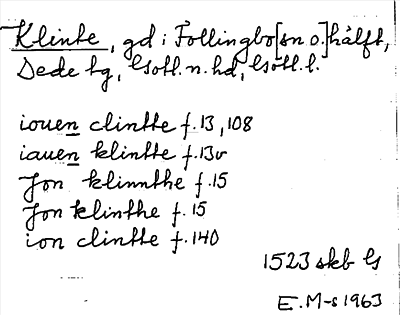 Klinte, gd i Follingbo [sn o.] hälft,
Dede tg, Gotl. n. hd, Gotl. l.
iouen clintte f. 13, 108
iauen klintte f. 13v
Jon klinnthe f. 15
Jon klinthe f. 15
ion clintte f. 140
1523 skb G
E. M-s 1963